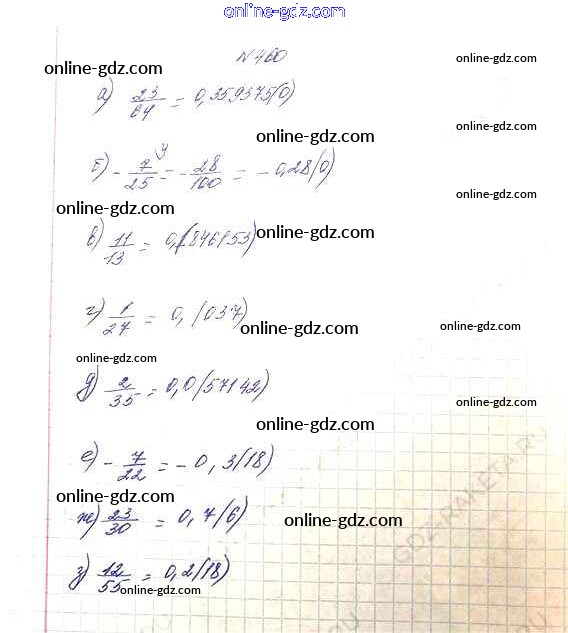 online-gdz.com
N460
online-gdz.com
online-gdz.com
а) 23/64 = 0,359375(0)
online-gdz.com
online-gdz.com
б) - 7/25 ⁴ = - 28/100 = - 0,28(0)
online-gdz.com
online-gdz.com
в) 11/13 = 0,(846153)
online-gdz.com
г) 1/27 = 0,(037)
online-gdz.com
online-gdz.com
online-gdz.com
д) 2/35 = 0,0(57142)
online-gdz.com
online-gdz.com
е) - 7/22 = - 0,3(18)
online-gdz.com
ж) 23/30 = 0,7(6)
online-gdz.com
GDZ-RAKETA.RU
з) 12/55 = 0,2(18)
online-gdz.com
online-gdz.com